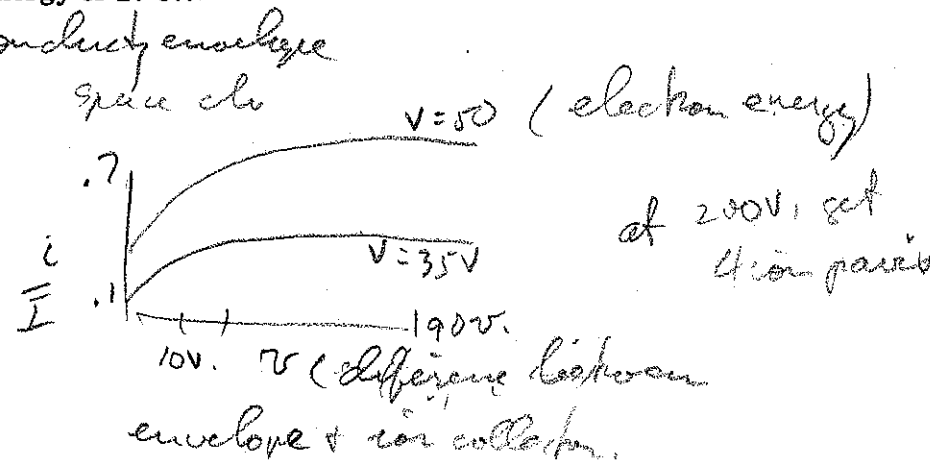 conducting envelope
space ch
V=50 (electron energy)
.7
at 200V, get
4 ion pairs
V=35V
i
I
.1
190v.
10v. v (difference between
envelope & ion collector.